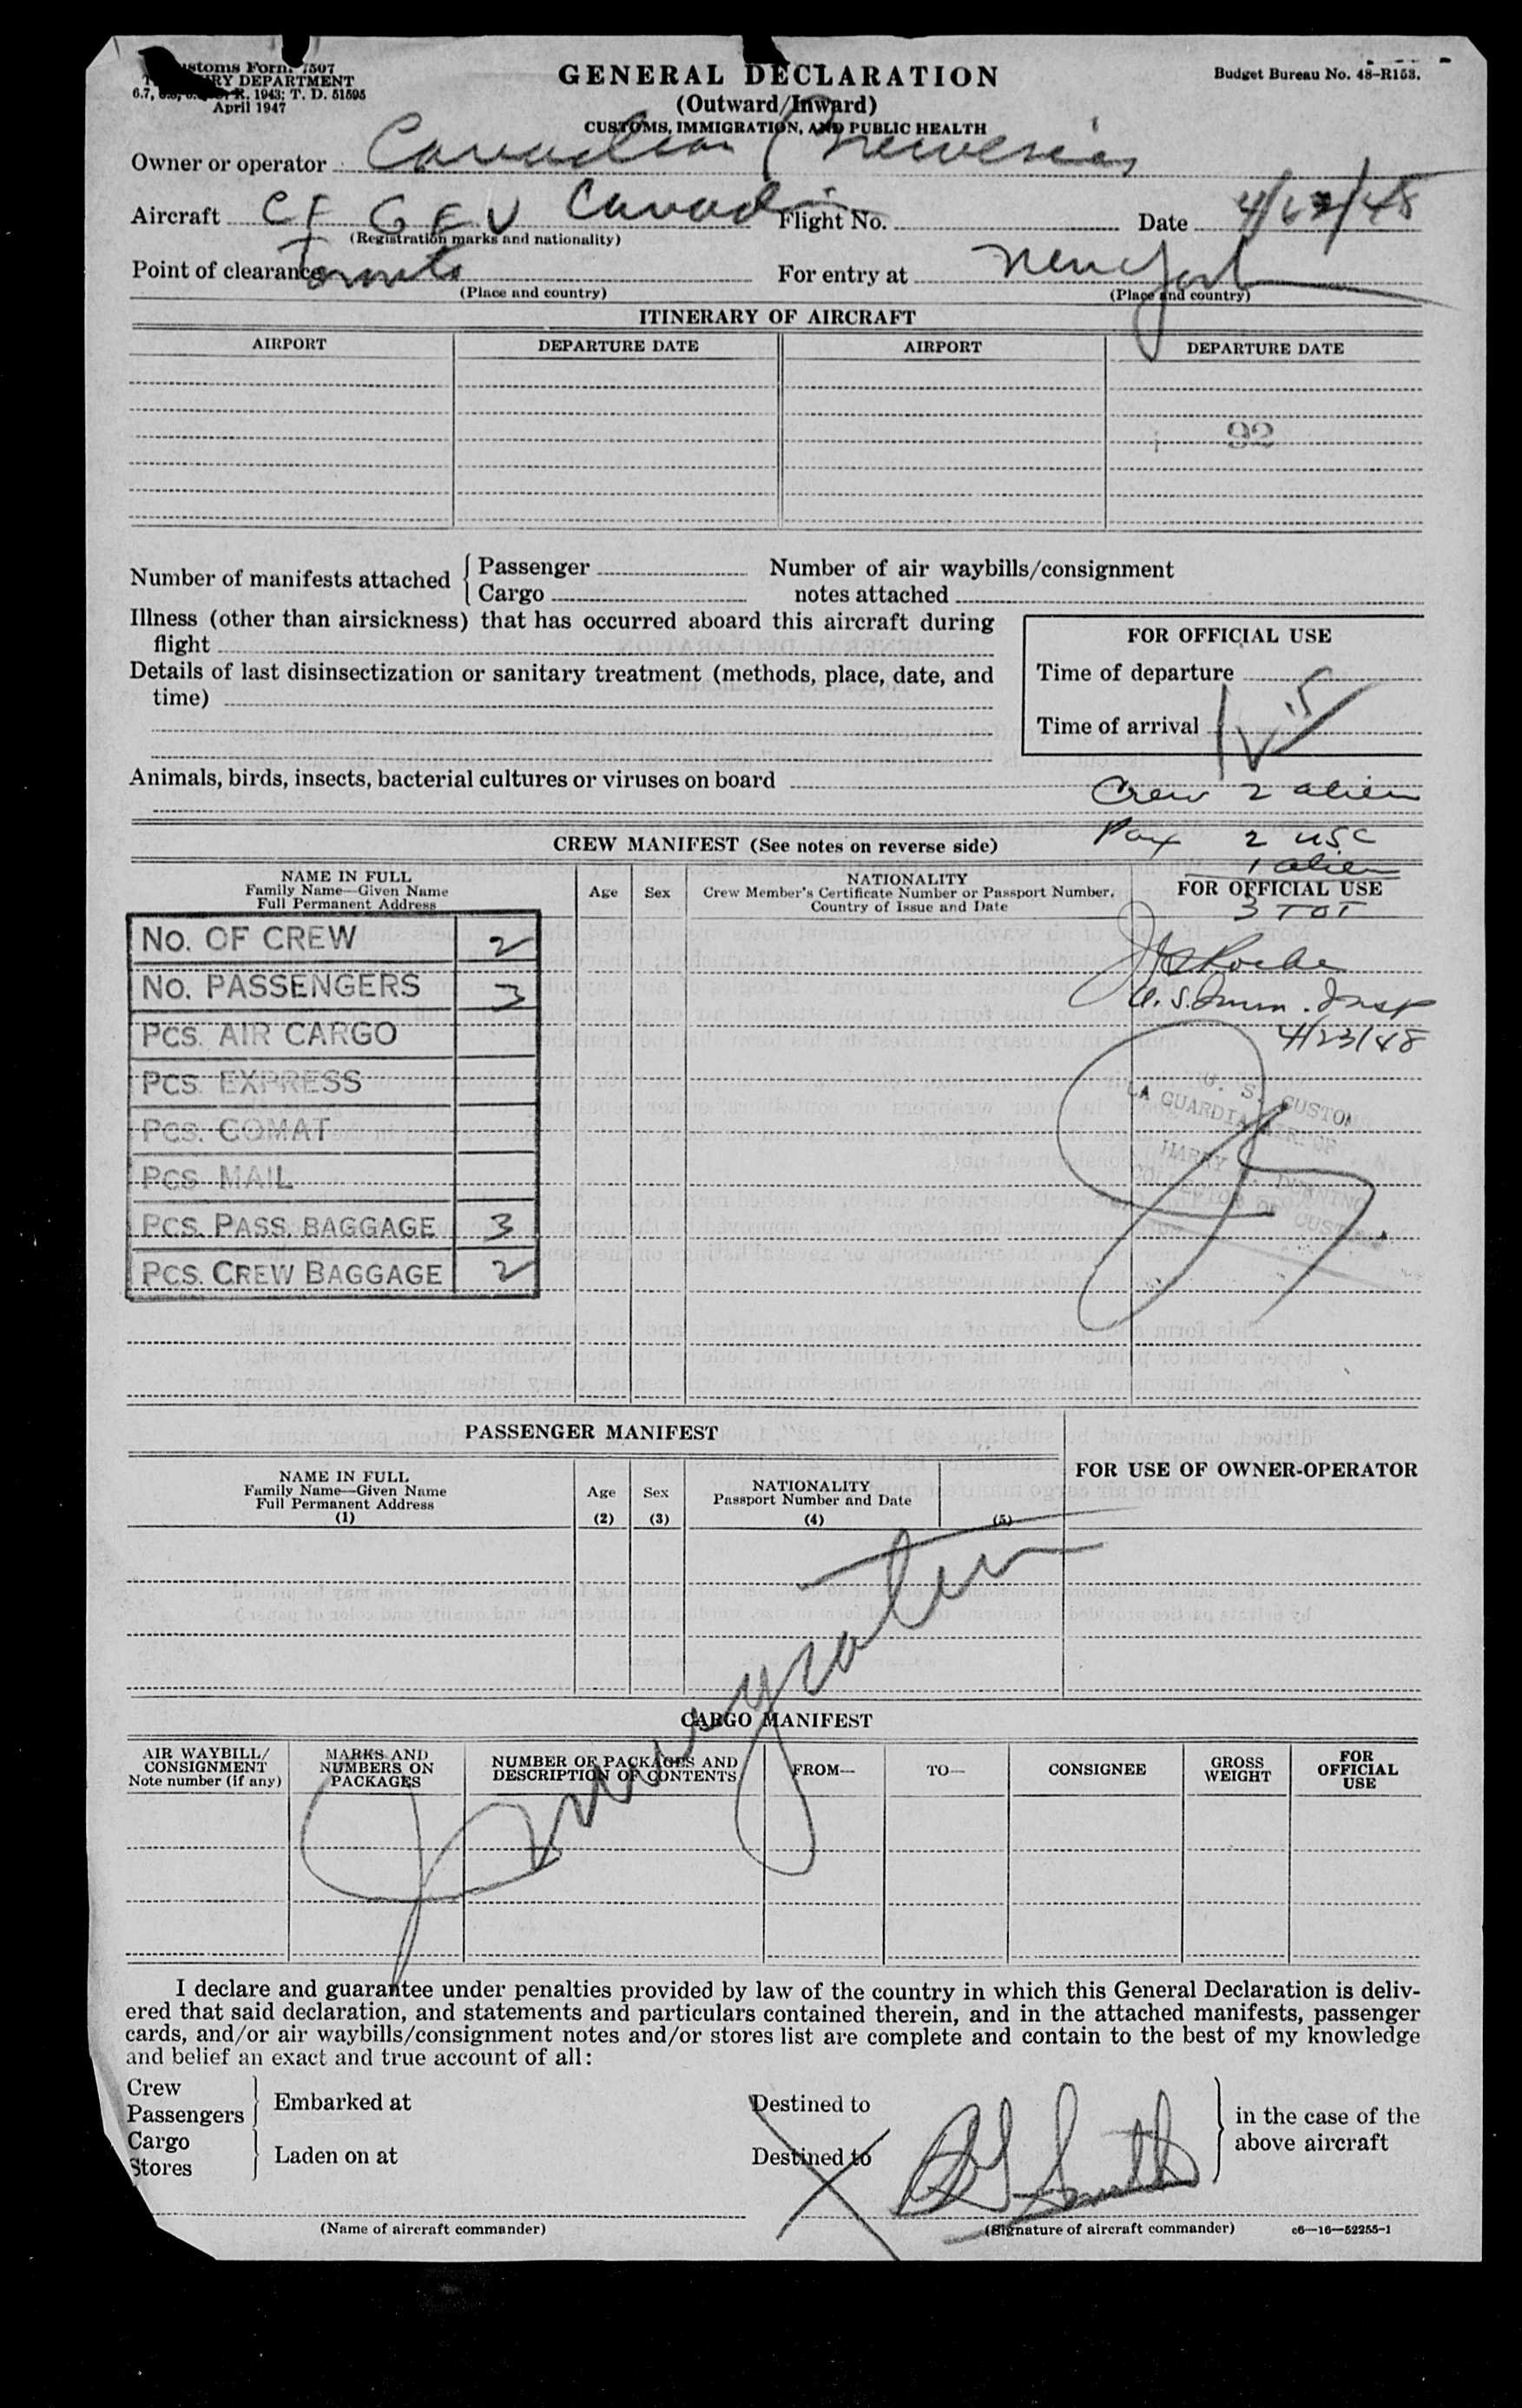 Customs Form 7507
DEPARTMENT
6.7, R. 1943; T. D. 51595
April 1947
GENERAL DECLARATION
(Outward/Inward)
CUSTOMS, IMMIGRATION, AND PUBLIC HEALTH
Budget Bureau No. 48-R153.
Owner or operator Canadian
Aircraft CF G E V Canad Flight No. Date 4/23/48
(Registration marks and nationality)
Point of clearance Toronto For entry at New York
(Place and country) (Place and country)
ITINERARY OF AIRCRAFT
AIRPORT DEPARTURE DATE AIRPORT DEPARTURE DATE
92
Number of manifests attached { Passenger Number of air waybills/consignment
Cargo notes attached
Illness (other than airsickness) that has occurred aboard this aircraft during
flight
Details of last disinsectization or sanitary treatment (methods, place, date, and
time)
FOR OFFICIAL USE
Time of departure
Time of arrival
Animals, birds, insects, bacterial cultures or viruses on board
Crew 2 alien
Pax 2 USC
1 alien
3 TOT
CREW MANIFEST (See notes on reverse side)
NAME IN FULL
Family Name—Given Name
Full Permanent Address
Age Sex
NATIONALITY
Crew Member's Certificate Number or Passport Number,
Country of Issue and Date
FOR OFFICIAL USE
Roche
U.S. Imm. Insp
4/23/48
No. OF CREW 2
No. PASSENGERS 3
PCS. AIR CARGO
PCS. EXPRESS
PCS. COMAT
PCS. MAIL
PCS. PASS. BAGGAGE 3
PCS. CREW BAGGAGE 2
U. S. CUSTOM
LA GUARDIA
HARRY DURNING
COLLECTOR OF CUSTOMS
PASSENGER MANIFEST
NAME IN FULL
Family Name—Given Name
Full Permanent Address
(1)
Age
(2)
Sex
(3)
NATIONALITY
Passport Number and Date
(4) (5)
FOR USE OF OWNER-OPERATOR
Immigration
CARGO MANIFEST
AIR WAYBILL/
CONSIGNMENT
Note number (if any)
MARKS AND
NUMBERS ON
PACKAGES
NUMBER OF PACKAGES AND
DESCRIPTION OF CONTENTS
FROM—
TO—
CONSIGNEE
GROSS
WEIGHT
FOR
OFFICIAL
USE
I declare and guarantee under penalties provided by law of the country in which this General Declaration is deliv-
ered that said declaration, and statements and particulars contained therein, and in the attached manifests, passenger
cards, and/or air waybills/consignment notes and/or stores list are complete and contain to the best of my knowledge
and belief an exact and true account of all:
Crew
Passengers
} Embarked at Destined to
Cargo
Stores
} Laden on at Destined to
} in the case of the
above aircraft
Smith
(Name of aircraft commander) (Signature of aircraft commander) c6—16—52255-1